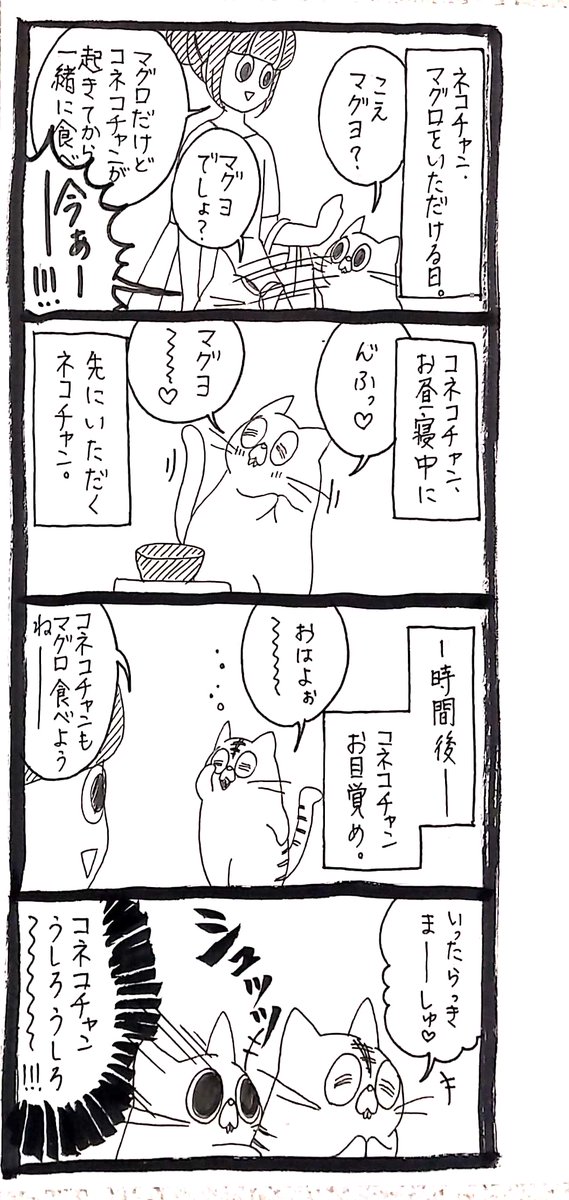 ネコチャン、
マグロをいただける日。
こえ
マグヨ?
マグヨ
でしょ?
マグロだけど
コネコチャンが
起きてから
一緒に食べ
今ぁー
ーー!!!
コネコチャン、
お昼寝中に
んふっ♡
マグヨ
〜〜〜♡
先にいただく
ネコチャン。
ー時間後ー
コネコチャン
お目覚め。
おはよぉ
〜〜〜〜
コネコチャンも
マグロ食べよう
ねーー
いったらっき
まーーしゅ♡
シュッッ
コネコチャン
うしろうしろ
〜〜〜〜!!!